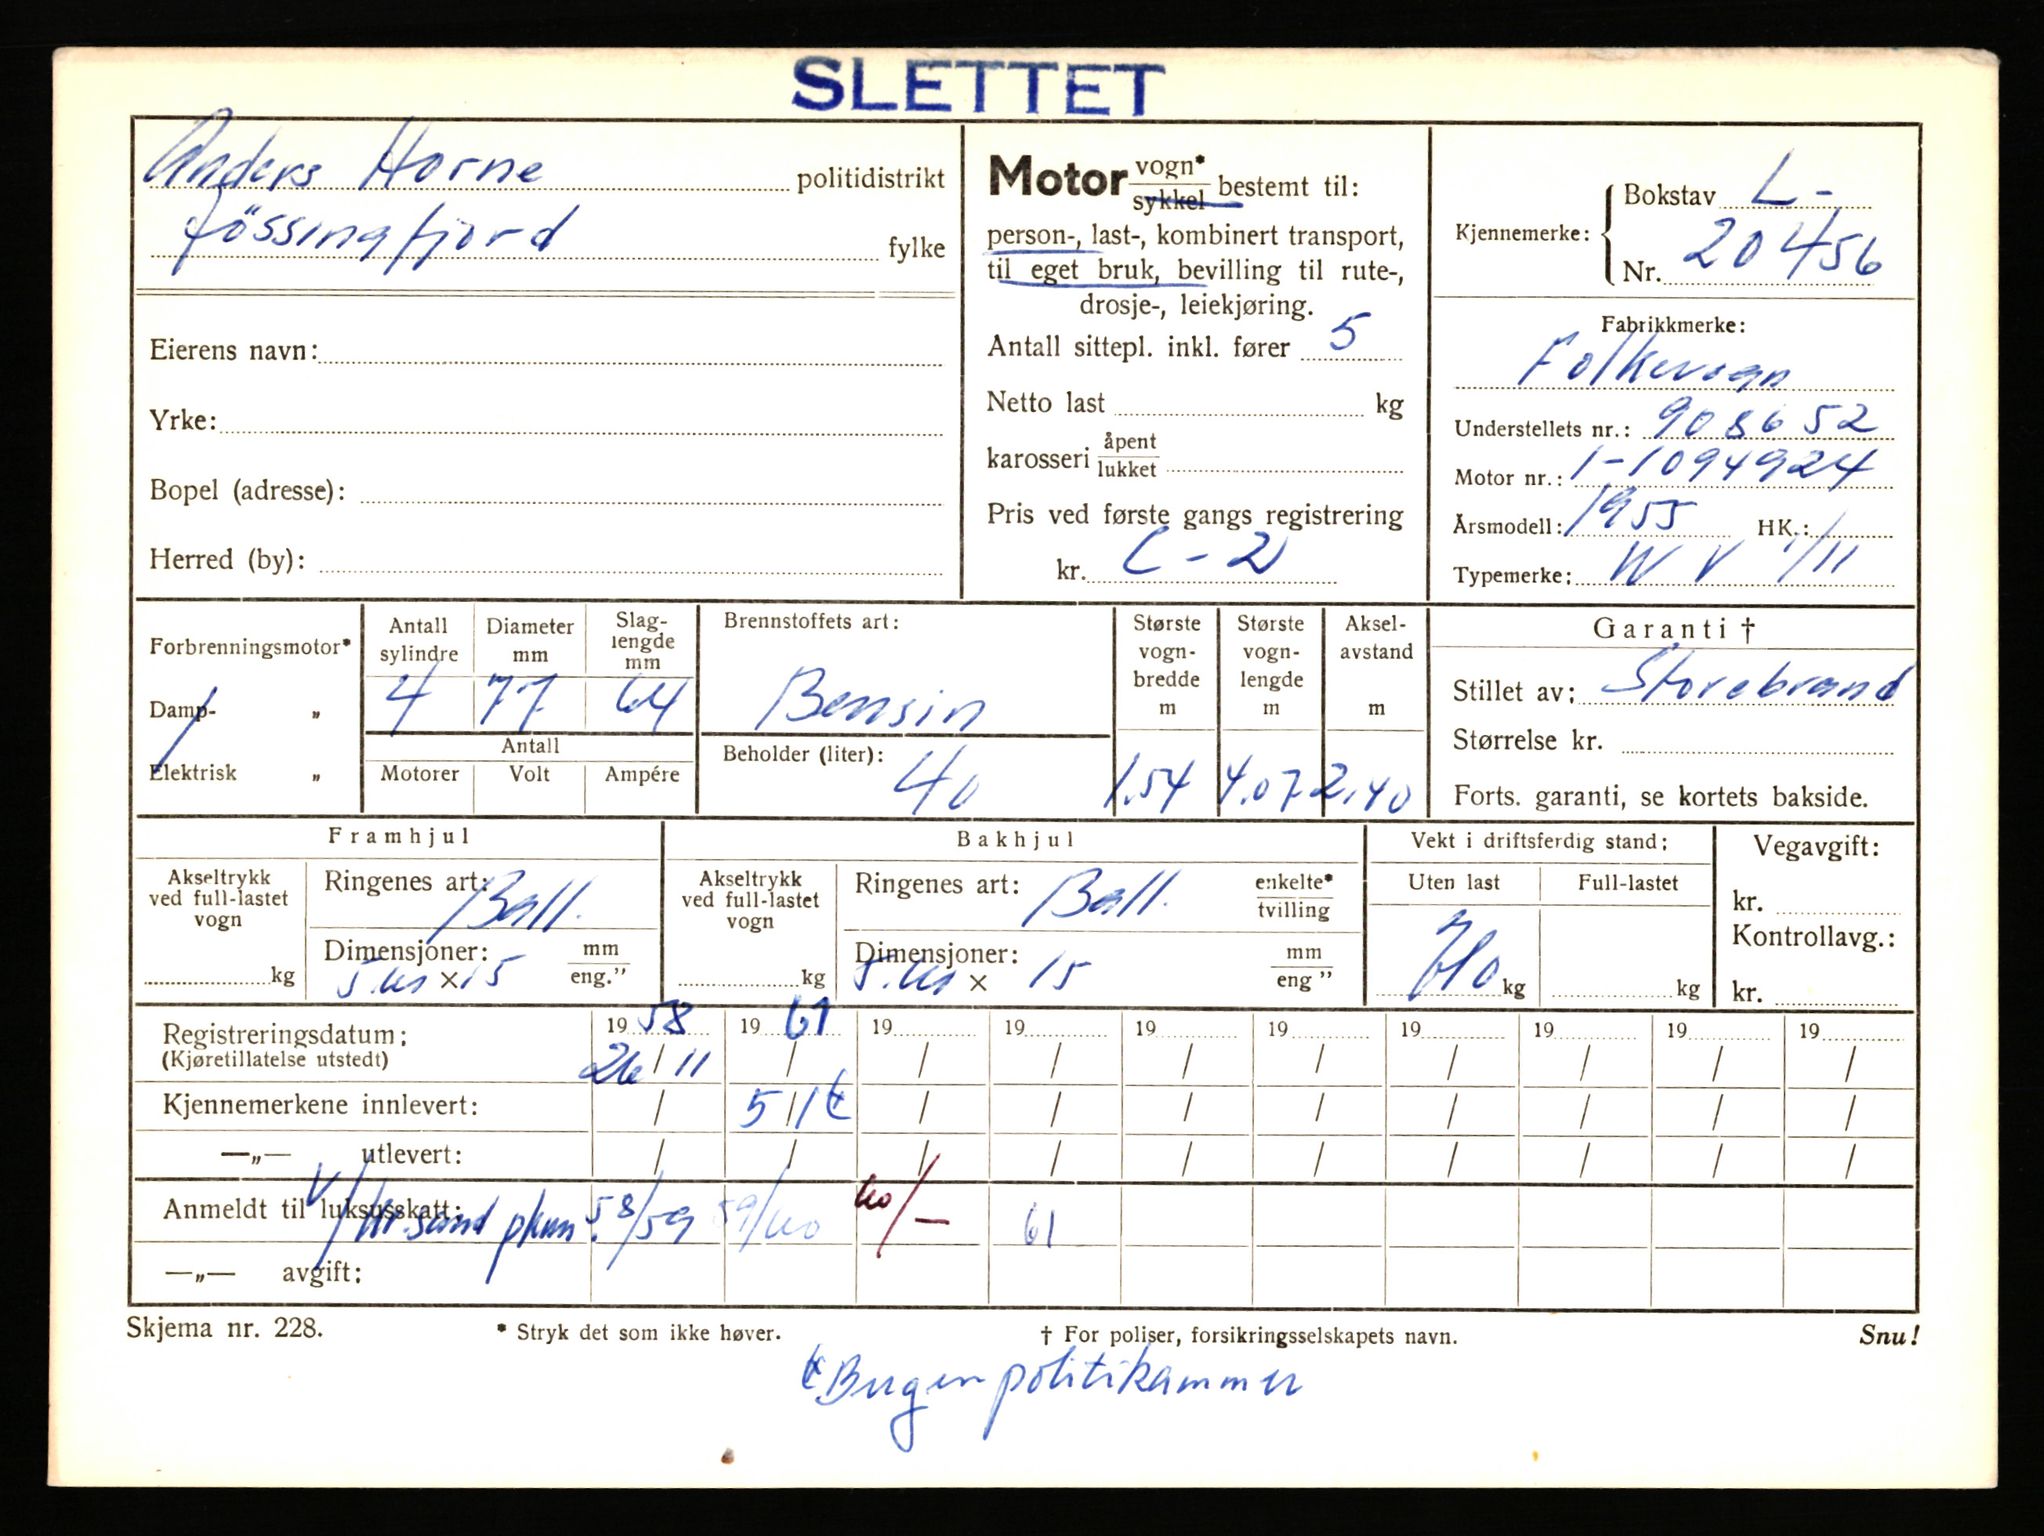 SLETTET
Anders Horne politidistrikt
Jössingfjord fylke
Eierens navn:
Yrke:
Bopel (adresse):
Herred (by):
Motor vogn*
sykkel bestemt til:
person-, last-, kombinert transport,
til eget bruk, bevilling til rute-,
drosje-, leiekjøring.
Antall sittepl. inkl. fører 5
Netto last kg
karosseri åpent
lukket
Pris ved første gangs registrering
kr. C - 2
Kjennemerke: Bokstav L-
Nr. 20456
Fabrikkmerke:
Folkevogn
Understellets nr.: 908652
Motor nr.: 1-1094924
Årsmodell: 1955 HK.:
Typemerke: W V 1/11
Forbrenningsmotor*
Damp- „
Elektrisk „
Antall sylindre Diameter mm Slag-lengde mm
4 77 64
Antall
Motorer Volt Ampére
Brennstoffets art:
Bensin
Beholder (liter):
40
Største vogn-bredde m Største vogn-lengde m Aksel-avstand m
1.54 4.07 2.40
Garanti †
Stillet av: Storebrand
Størrelse kr.
Forts. garanti, se kortets bakside.
Framhjul
Akseltrykk ved full-lastet vogn
kg
Ringenes art: Ball.
Dimensjoner: mm
5.60 × 15 eng.”
Bakhjul
Akseltrykk ved full-lastet vogn
kg
Ringenes art: Ball. enkelte*
tvilling
Dimensjoner: mm
5.60 × 15 eng ”
Vekt i driftsferdig stand:
Uten last Full-lastet
kg kg
Vegavgift:
kr.
Kontrollavg.:
kr.
Registreringsdatum: 19 58 19 61 19 19 19 19 19 19 19 19
(Kjøretillatelse utstedt) 26/11 / / / / / / / / /
Kjennemerkene innlevert: / 5/1 / / / / / / / /
—„— utlevert: / / / / / / / / / /
Anmeldt til luksusskatt: 58/59 59/60 60/— 61
V/Kr.sand pkm.
—„— avgift:
Skjema nr. 228. * Stryk det som ikke høver. † For poliser, forsikringsselskapets navn. Snu!
Bergen politikammer